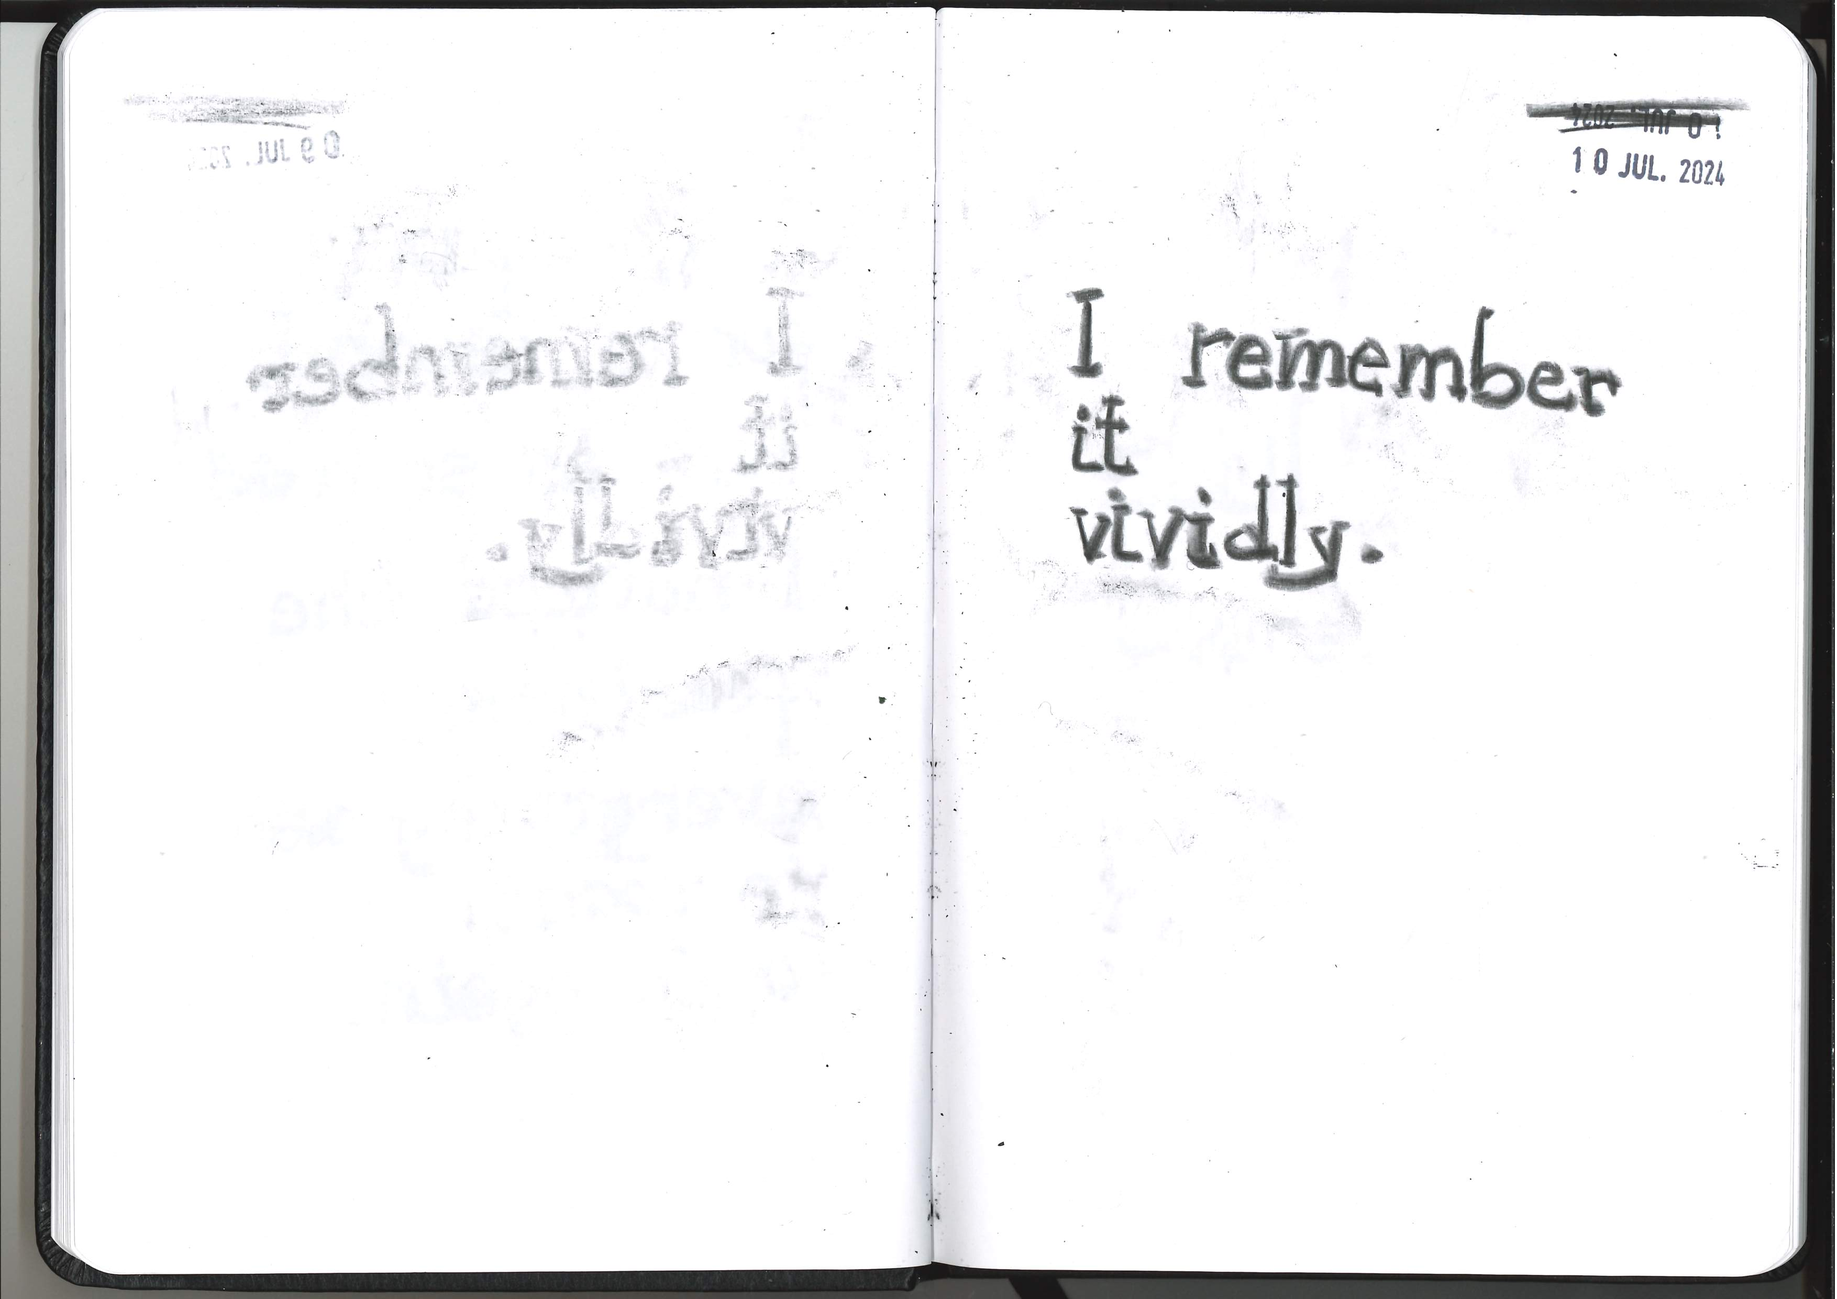 10 JUL. 2024
I remember
it
vividly.